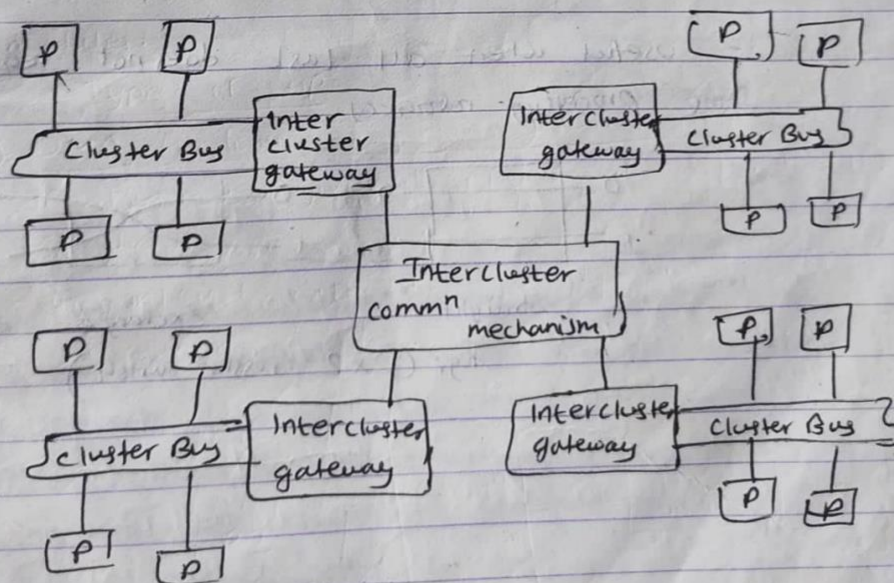 P P
P P
Cluster Bus
Inter
cluster
gateway
Intercluster
gateway
Cluster Bus
P P
P P
Intercluster
commⁿ
mechanism
P P
P P
Cluster Bus
Intercluster
gateway
Intercluster
gateway
Cluster Bus
P P
P P